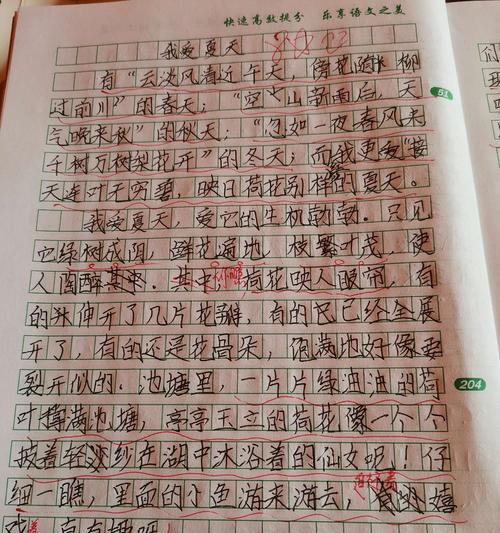 快速高效提分 乐享语文之美
我爱夏天
有“云淡风轻近午天，傍花随柳
过前川”的春天；“空山新雨后，天
51
气晚来秋”的秋天；“忽如一夜春风来
千树万树梨花开”的冬天；而我更爱“接
天连叶无穷碧，映日荷花别样的夏天。
我爱夏天，爱它的生机勃勃。只见
它绿树成阴，鲜花遍地，枝繁叶茂，使
人陶醉其中．其中，荷花映人眼帘，有
的只伸开了几片花瓣，有的已已经全展
开了，有的还是花骨朵，饱满地好像要
裂开似的．池塘里，一片片绿油油的荷
204
叶撑满池塘，亭亭玉立的荷花像一个个
披着轻纱在湖中沐浴着的仙女呢！仔
细一瞧，里面的小鱼游来游去，嬉
戏着真有趣呀！
们